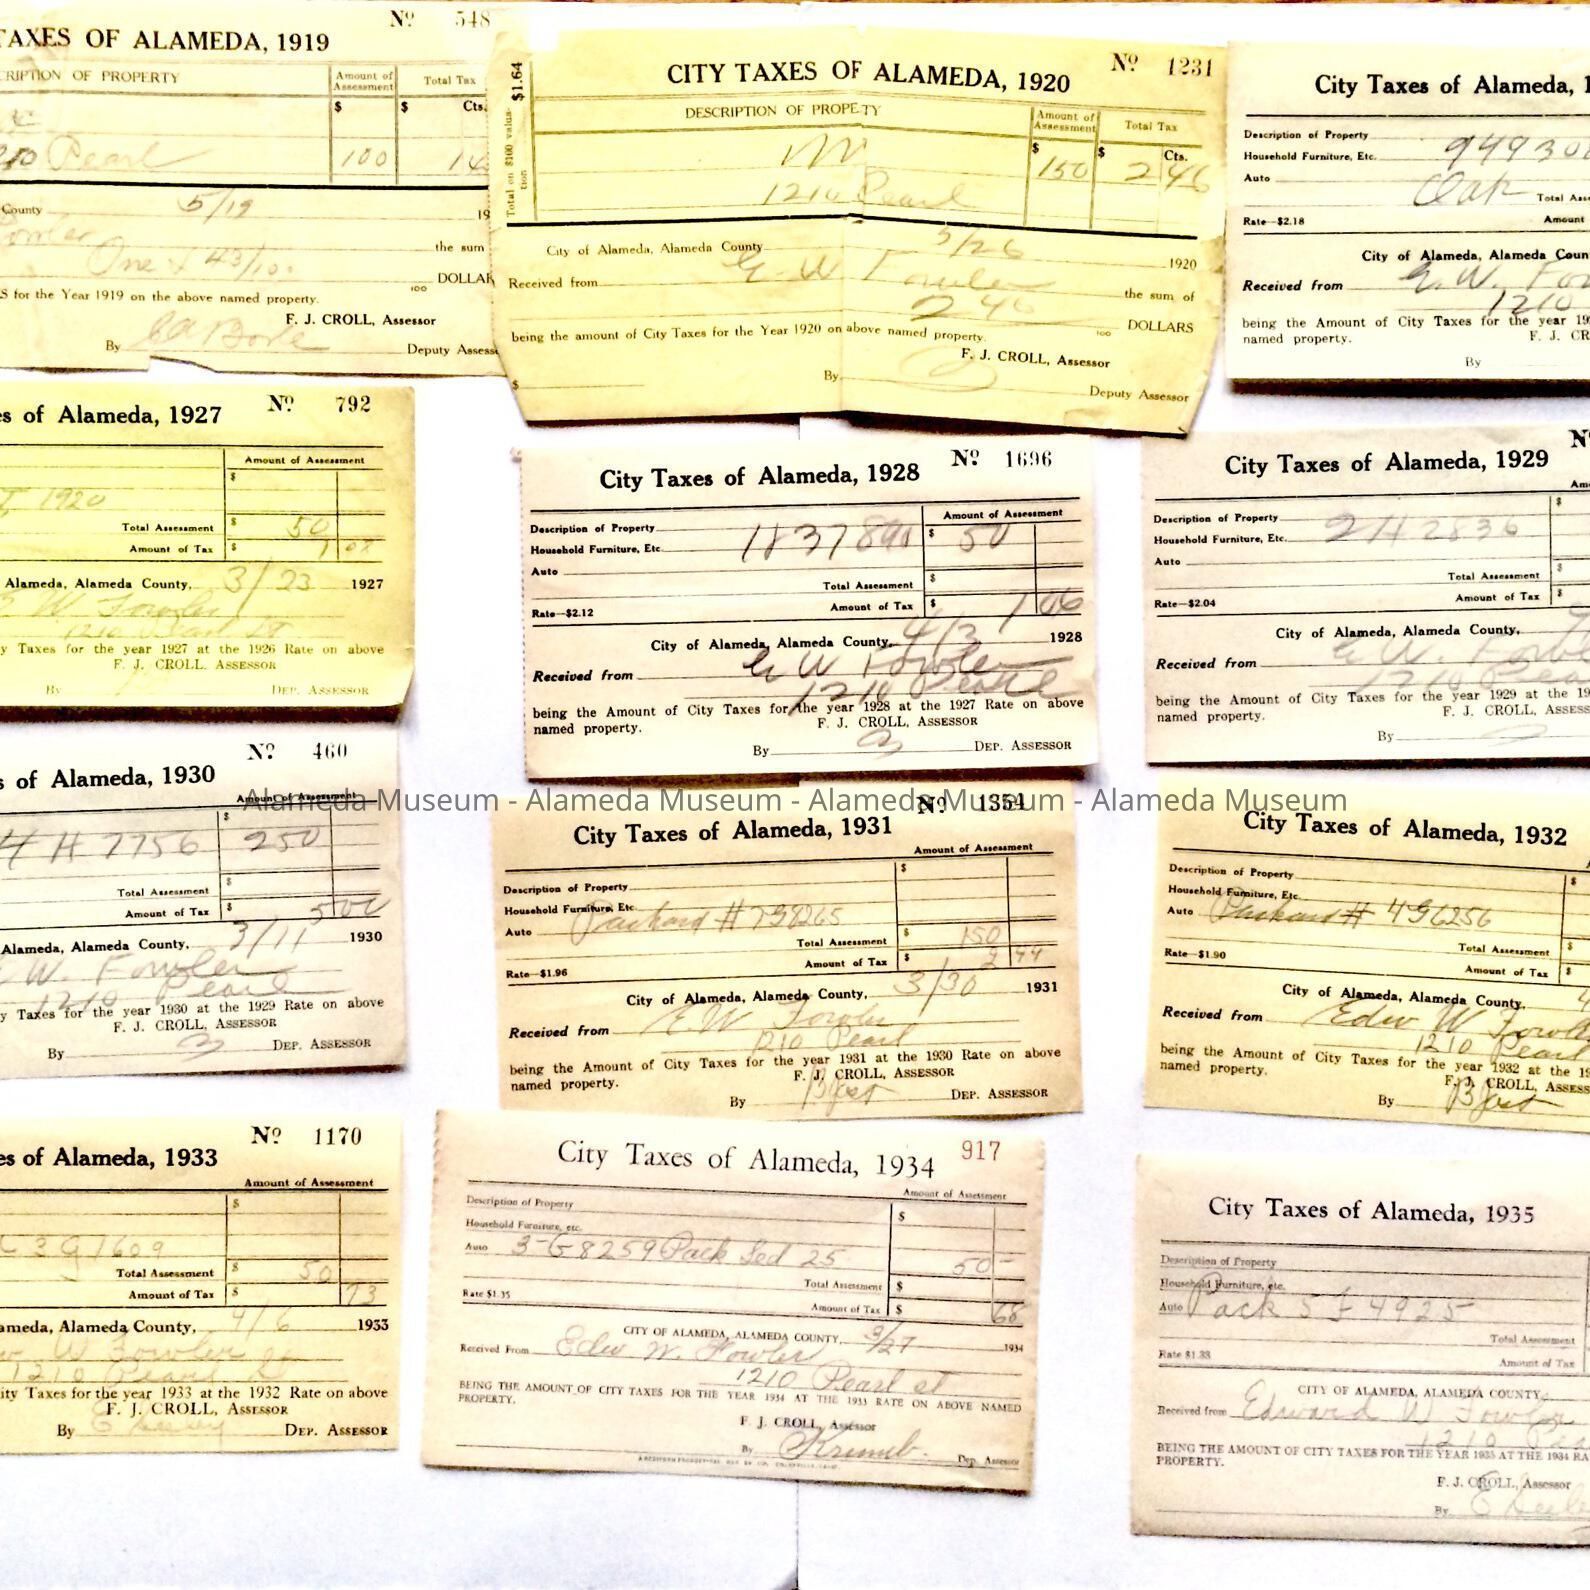 TAXES OF ALAMEDA, 1919 Nº 548
CRIPTION OF PROPERTY Amount of Assessment Total Tax
$ $ Cts.
Pearl 100
County 5/19 19
the sum
One & 43/100 DOLLAR
100
S for the Year 1919 on the above named property.
F. J. CROLL, Assessor
By Deputy Assess
CITY TAXES OF ALAMEDA, 1920 Nº 1231
Total on $100 valuation $1.64
DESCRIPTION OF PROPETY Amount of Assessment Total Tax
$ $ Cts.
150 2 46
1210 Pearl
City of Alameda, Alameda County 5/26 1920
Received from E. W. Fowler the sum of
2 46 DOLLARS
100
being the amount of City Taxes for the Year 1920 on above named property.
F. J. CROLL, Assessor
By
$ Deputy Assessor
City Taxes of Alameda, 1
Description of Property
Household Furniture, Etc. 94930
Auto Oak Total Ass
Rate—$2.18 Amount
City of Alameda, Alameda Coun
Received from E. W. Fow
1210
being the Amount of City Taxes for the year 19
named property. F. J. CR
By
es of Alameda, 1927 Nº 792
Amount of Assessment
$
1920
Total Assessment $ 50
Amount of Tax $ 1 07
Alameda, Alameda County, 3/23 1927
W Fowler
1210 Pearl St
y Taxes for the year 1927 at the 1926 Rate on above
F. J. CROLL, ASSESSOR
By DEP. ASSESSOR
City Taxes of Alameda, 1928 Nº 1696
Amount of Assessment
Description of Property $ 50
Household Furniture, Etc.
Auto
Total Assessment $
Rate—$2.12 Amount of Tax $ 1 06
City of Alameda, Alameda County, 4/3 1928
Received from E W Fowler
1210 Pearl
being the Amount of City Taxes for the year 1928 at the 1927 Rate on above
named property. F. J. CROLL, ASSESSOR
By DEP. ASSESSOR
City Taxes of Alameda, 1929 Nº
Am
Description of Property $
Household Furniture, Etc. 2H2836
Auto
Total Assessment $
Rate—$2.04 Amount of Tax $
City of Alameda, Alameda County,
Received from E. W. Fowle
1210 Pea
being the Amount of City Taxes for the year 1929 at the 19
named property. F. J. CROLL, ASSESS
By
s of Alameda, 1930 Nº 460
Amount of Assessment
4 H 7756 $ 250
Total Assessment $
Amount of Tax $ 5 00
Alameda, Alameda County, 3/11 1930
W. Fowler
1210 Pearl
y Taxes for the year 1930 at the 1929 Rate on above
F. J. CROLL, ASSESSOR
By DEP. ASSESSOR
Alameda Museum - Alameda Museum - Alameda Museum - Alameda Museum
City Taxes of Alameda, 1931 Nº 1354
Amount of Assessment
Description of Property $
Household Furniture, Etc.
Auto Packard # 7G8265
Total Assessment $ 150
Rate—$1.96 Amount of Tax $ 2 94
City of Alameda, Alameda County, 3/30 1931
Received from E. W. Fowler
1210 Pearl
being the Amount of City Taxes for the year 1931 at the 1930 Rate on above
named property. F. J. CROLL, ASSESSOR
By DEP. ASSESSOR
City Taxes of Alameda, 1932
Description of Property $
Household Furniture, Etc.
Auto Packard # 4G6256
Total Assessment $
Rate—$1.90 Amount of Tax $
City of Alameda, Alameda County, 4
Received from Edw W Fowle
1210 Pearl
being the Amount of City Taxes for the year 1932 at the 19
named property. F. J. CROLL, ASSESS
By
es of Alameda, 1933 Nº 1170
Amount of Assessment
$
3G1609
Total Assessment $ 50
Amount of Tax $ 73
ameda, Alameda County, 4/6 1933
W Fowler
1210 Pearl St
ity Taxes for the year 1933 at the 1932 Rate on above
F. J. CROLL, ASSESSOR
By DEP. ASSESSOR
City Taxes of Alameda, 1934 917
Amount of Assessment
Description of Property $
Household Furniture, etc.
Auto 3-G8259 Pack Sed 25 50-
Total Assessment $
Rate $1.35 Amount of Tax $ 68
CITY OF ALAMEDA, ALAMEDA COUNTY, 3/27 1934
Received From Edw W. Fowler
1210 Pearl st
BEING THE AMOUNT OF CITY TAXES FOR THE YEAR 1934 AT THE 1933 RATE ON ABOVE NAMED
PROPERTY.
F. J. CROLL, Assessor
By Krumb. Dep. Assessor
City Taxes of Alameda, 1935
Description of Property
Household Furniture, etc.
Auto Pack 5F4925
Total Assessment
Rate $1.33 Amount of Tax
CITY OF ALAMEDA, ALAMEDA COUNTY,
Received from Edward W Fowler
1210 Pea
BEING THE AMOUNT OF CITY TAXES FOR THE YEAR 1935 AT THE 1934 RA
PROPERTY.
F. J. CROLL, Assessor
By